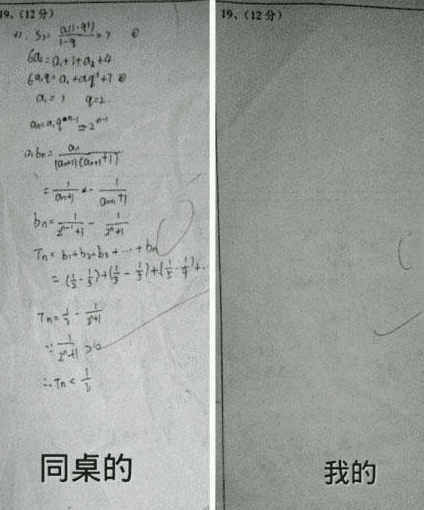 19.（12分）
S₃ = a₁(1-q³)/1-q = 7 ①
6a₂ = a₁+3+a₃+4
6a₁q = a₁+a₁q²+7 ②
a₁=1 q=2
an=a₁qⁿ⁻¹=2ⁿ⁻¹
bn = an/(an+1)(an+1+1)
= 1/an+1 - 1/an+1+1
bn = 1/2ⁿ⁻¹+1 - 1/2ⁿ+1
Tn = b₁+b₂+b₃+…+bn
= (1/2-1/3)+(1/3-1/5)+(1/5-1/9)+…
Tn = 1/2 - 1/2ⁿ+1
∵ 1/2ⁿ+1 >0
∴ Tn < 1/2
同桌的
19.（12分）
我的